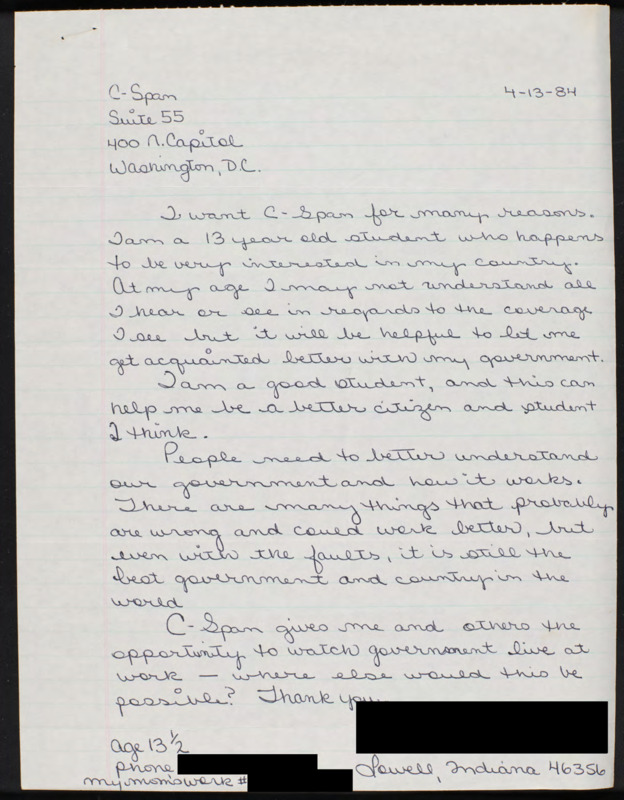 C-Span 4-13-84
Suite 55
400 N. Capitol
Washington, D.C.
I want C-Span for many reasons.
I am a 13 year old student who happens
to be very interested in my country.
At my age I may not understand all
I hear or see in regards to the coverage
I see but it will be helpful to let me
get acquainted better with my government.
I am a good student, and this can
help me be a better citizen and student
I think.
People need to better understand
our government and how it works.
There are many things that probably
are wrong and could work better, but
even with the faults, it is still the
best government and country in the
world
C-Span gives me and others the
opportunity to watch government live at
work — where else would this be
possible? Thank you
age 13 1/2
phone
my mom's work # Lowell, Indiana 46356